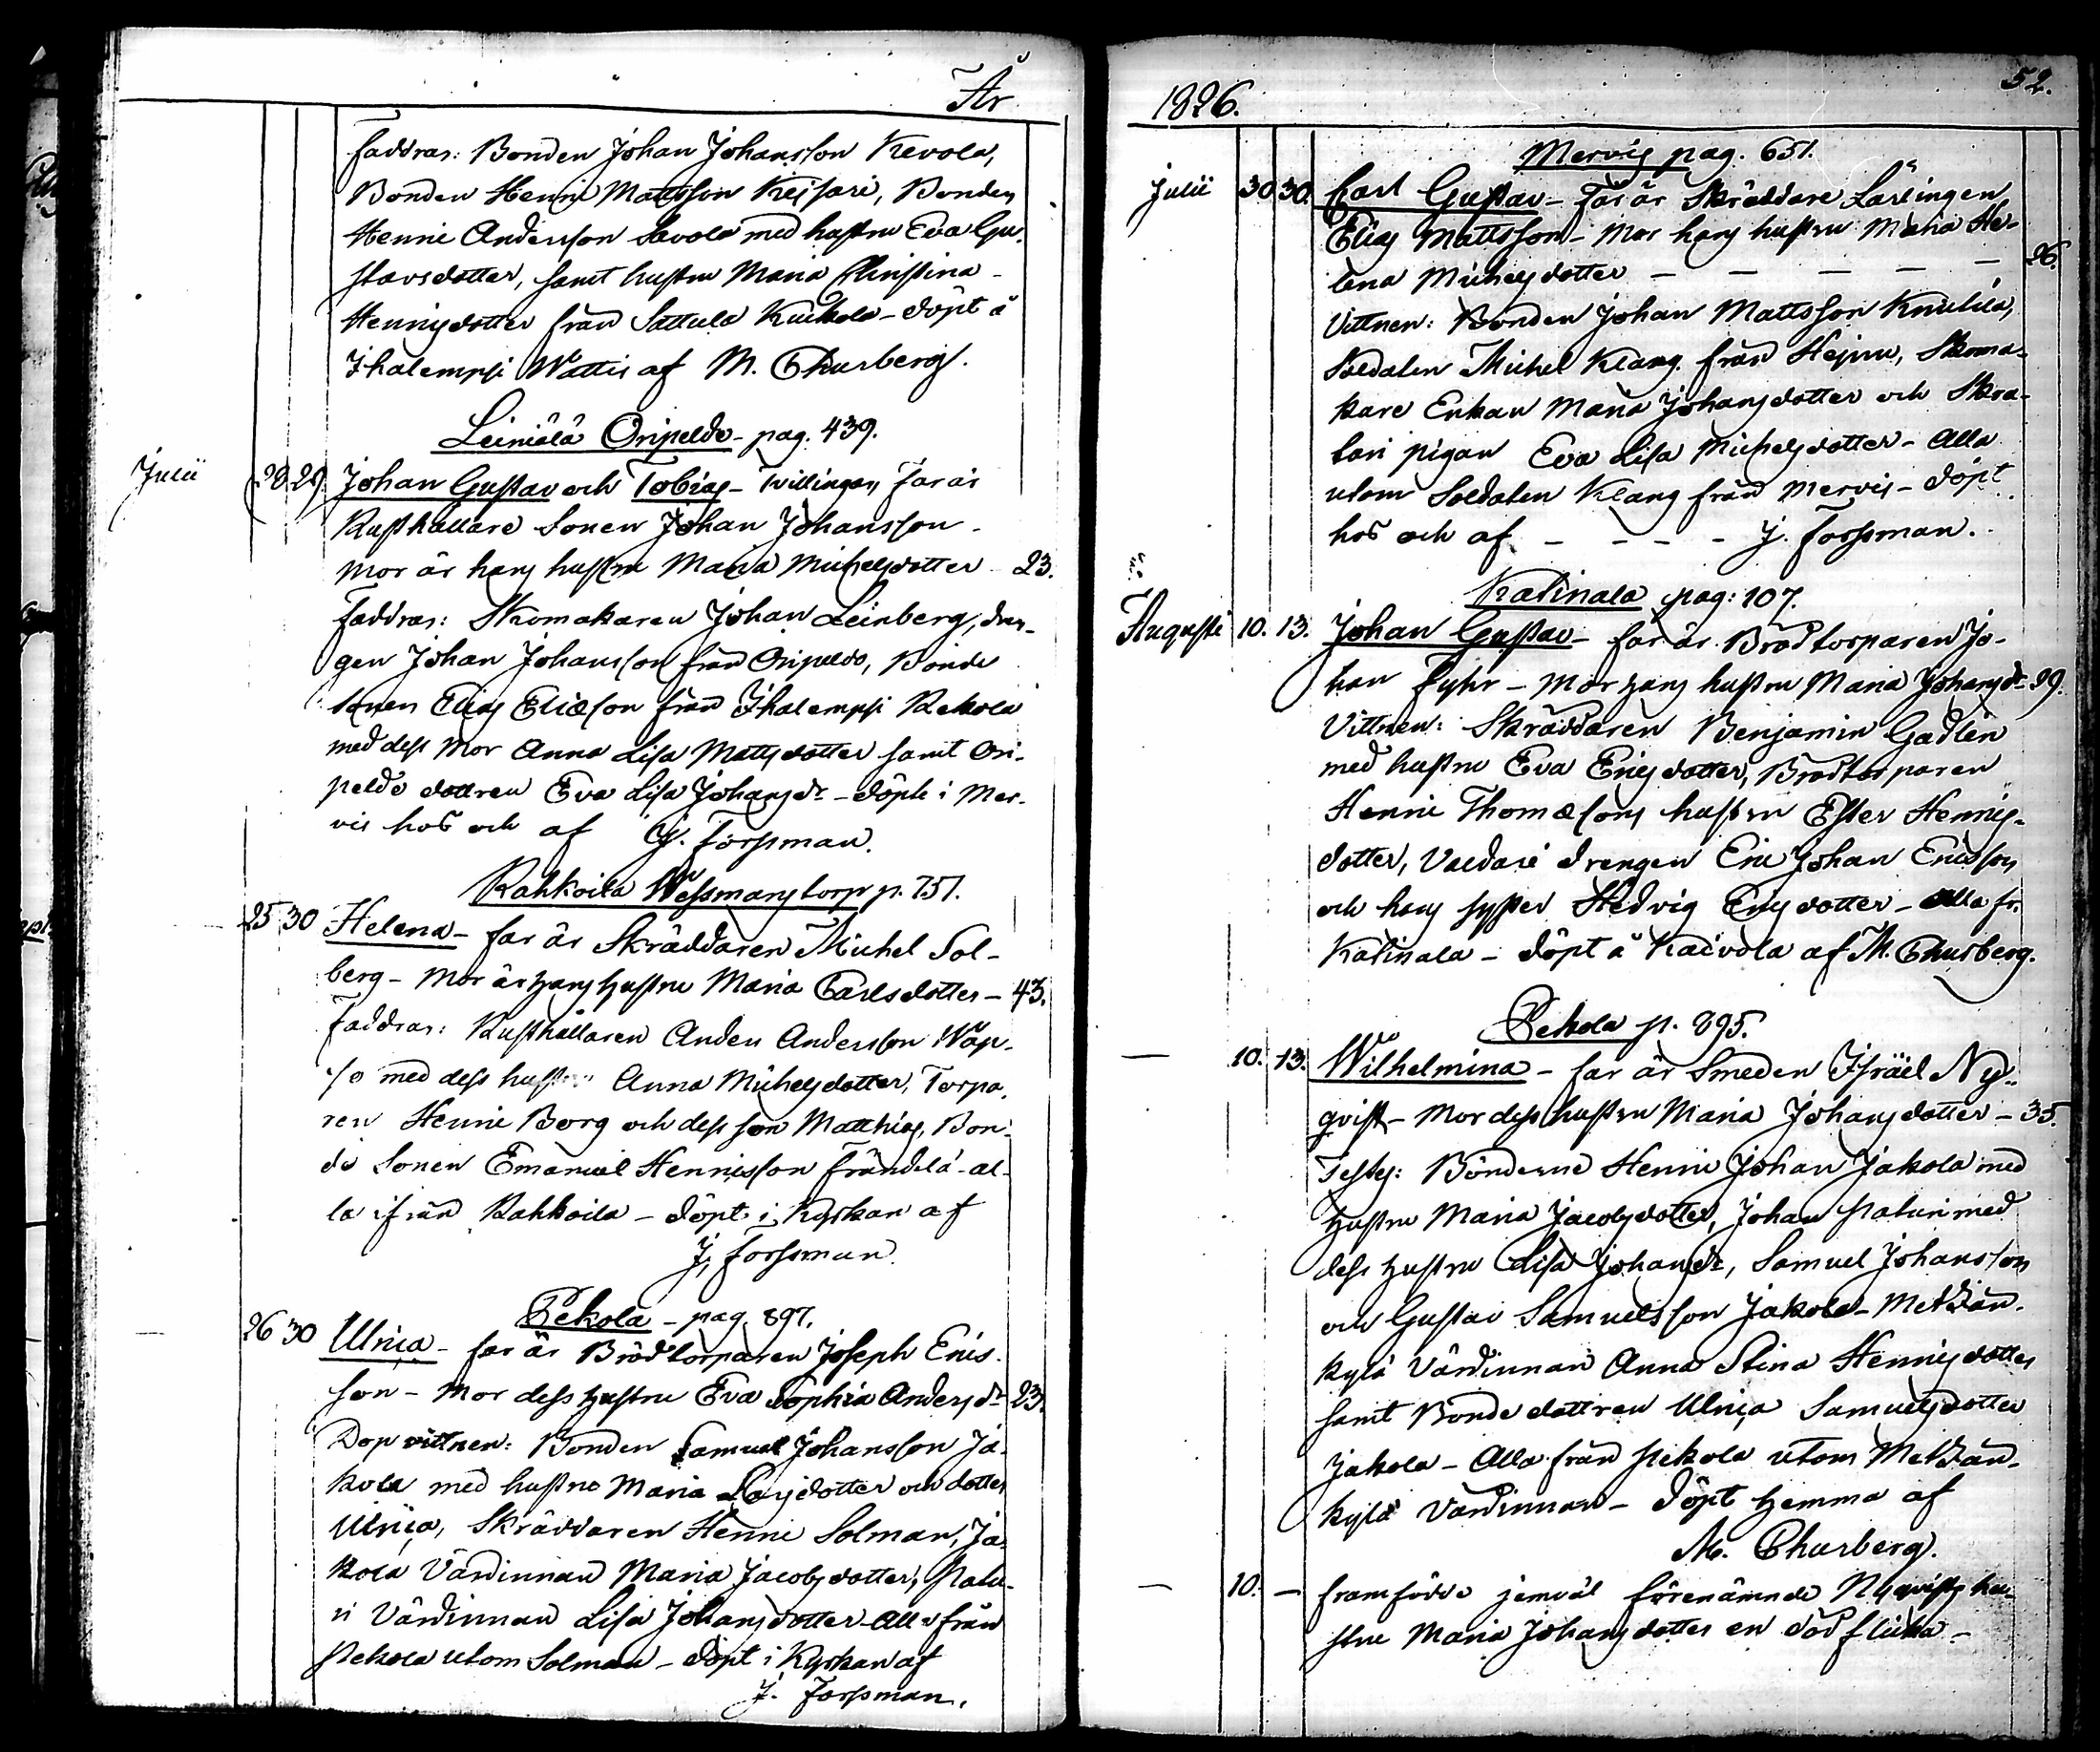 År
Faddrar: Bonden Johan Johansson Kevola,
Bonden Henric Mattsson Keisari, Bonden
Henric Andersson Savola med hustru Eva Gu-
stavsdotter, samt hustru Maria Christina
Henricsdotter från Sattula Kuckola - döpt å
Ihalempi Wattis af M. Churberg.
Leiniälä Oripeldo - pag. 439.
Julii 28 29 Johan Gustav och Tobias - Tvillingar, Far är
Rusthållare Sonen Johan Johansson -
Mor är hans hustru Maria Michelsdotter - 23.
Faddrar: Skomakaren Johan Leinberg, drän-
gen Johan Johansson från Oripeldo, Bonde
sonen Elias Eliæson från Ihalempi Rekola
med dess Mor Anna Lisa Mattsdotter samt Ori-
peldo dottren Eva Lisa Johansdr - döpte i Mer-
vis hos och af J. Forssman.
Rahkoila Wessmans torp p. 751.
25 30 Helena - far är Skräddaren Michel Sol-
berg - Mor är hans hustru Maria Carlsdotter - 43.
Faddrar: Rusthållaren Anders Andersson
med dess hustru Anna Michelsdotter, Torpa-
ren Henric Borg och dess son Matthias, Bon-
de Sonen Emanuel Henricsson Frändilä - al-
la ifrån Rahkoila - döpt i Kyrkan af
J. Forssman
Pekola - pag. 897.
26 30 Ulrica - far är Brödtorparen Joseph Erics-
son - Mor dess hustru Eva Sophia Andersdr 23.
Dop vittnen: Bonden Samuel Johansson Ja-
kola med hustru Maria Larsdotter och dotter
Ulrica, Skräddaren Henric Solman, Ja-
kola Värdinnan Maria Jacobsdotter, Patu-
ri Värdinnan Lisa Johansdotter - Alla från
Pekola utom Solman - döpt i Kyrkan af
J. Forssman.
1826.
52.
Mervis pag. 651.
Julii 30 30. Carl Gustav - Far är Skräddare Lärlingen
Elias Mattsson - Mor hans hustru Maria He-
lena Michelsdotter - - - - - 26.
Vittnen: Bonden Johan Mattsson Knulia,
Soldaten Michel Klang från Hejnu, Skoma-
kare Enkan Maria Johansdotter och Skra-
tari pigan Eva Lisa Michelsdotter - Alla
utom Soldaten Klang från Mervis - döpt
hos och af - - - - J. Forssman.
Katinala pag: 107.
Augusti 10. 13. Johan Gustav - far är Brödtorparen Jo-
han Fyhr - Mor hans hustru Maria Johansdr 29.
Vittnen: Skräddaren Benjamin Gadlén
med hustru Eva Ericsdotter, Brödtorparen
Henric Thomæsons hustru Ester Henrics-
dotter, Valdari drengen Eric Johan Ericsson
och hans syster Hedvig Ericsdotter - Alla fr.
Katinala - döpt å Kaivola af M. Churberg.
Pekola p. 895.
— 10. 13. Wilhelmina - far är Smeden Israël Ny-
qvist - Mor dess hustru Maria Johansdotter - 35.
Testes: Bönderne Henric Johan Jakola med
hustru Maria Jacobsdotter, Johan Paturi med
dess hustru Lisa Johansdr, Samuel Johansson
och Gustav Samuelsson Jakola - Metsän-
kylä Värdinnan Anna Stina Henricsdotter
samt Bonde dottren Ulrica Samuelsdotter
Jakola - Alla från Pekola utom Metsän-
kylä Värdinnan - döpt hemma af
M. Churberg.
— 10. — framfödde jemväl förenämnde Nyqvists hu-
stru Maria Johansdotter en död flicka -